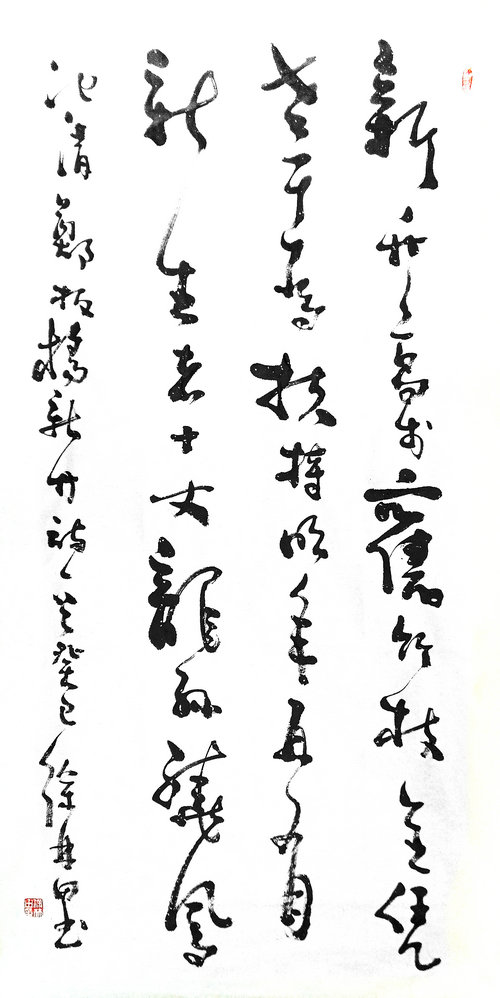 新竹高於舊竹枝全凭
老干為扶持明年再有
新生者十丈龍孫繞鳳
池 清鄭板橋新竹詩一首癸巳徐書